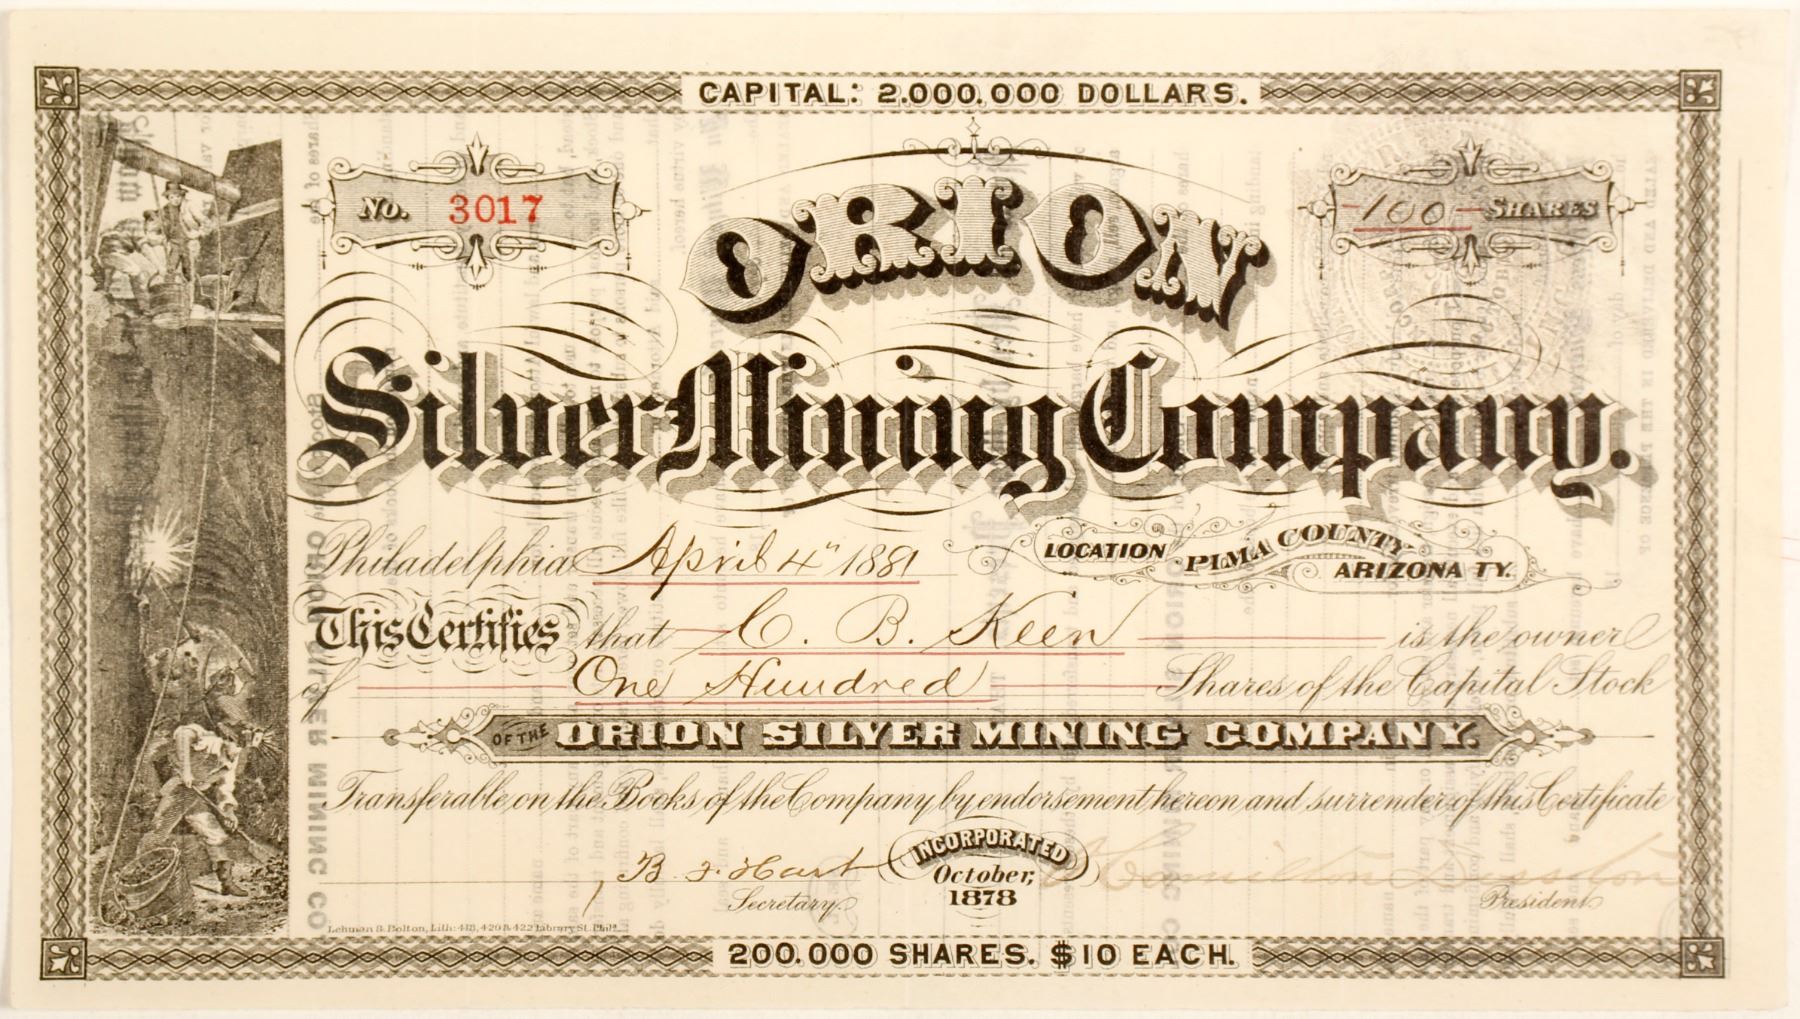 CAPITAL: 2.000.000 DOLLARS.
No. 3017
100 SHARES
ORION
Silver Mining Company.
Philadelphia April 4th 1881
LOCATION PIMA COUNTY ARIZONA TY.
This Certifies that C. B. Keen is the owner
of One Hundred Shares of the Capital Stock
OF THE ORION SILVER MINING COMPANY.
Transferable on the Books of the Company by endorsement hereon and surrender of this Certificate
INCORPORATED
October,
1878
B. F. Hart
Secretary
Hamilton
President
Lehman & Bolton, Lith: 418, 420 & 422 Library St. Phila
200.000 SHARES. $10 EACH.